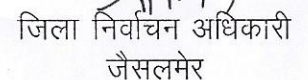 जिला निर्वाचन अधिकारी
जैसलमेर